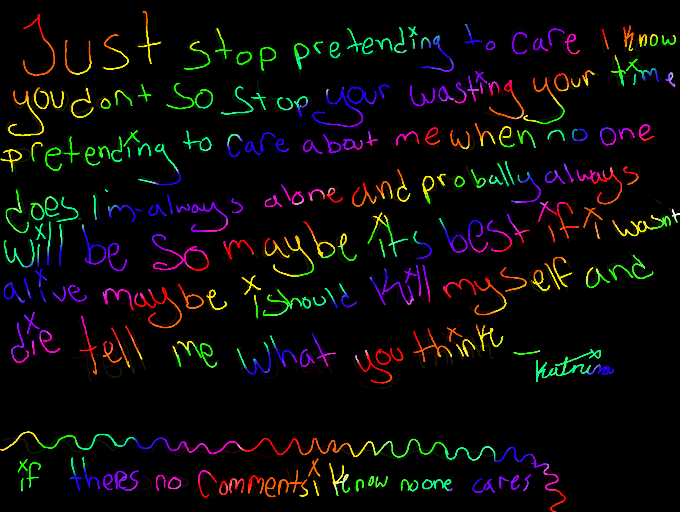 Just stop pretending to care I know
you dont so stop your wasting your time
pretending to care about me when no one
does I'm always alone and probally always
will be so maybe its best if i wasnt
alive maybe i should kill myself and
die tell me what you think -Katrina
if theres no comments i know no one cares